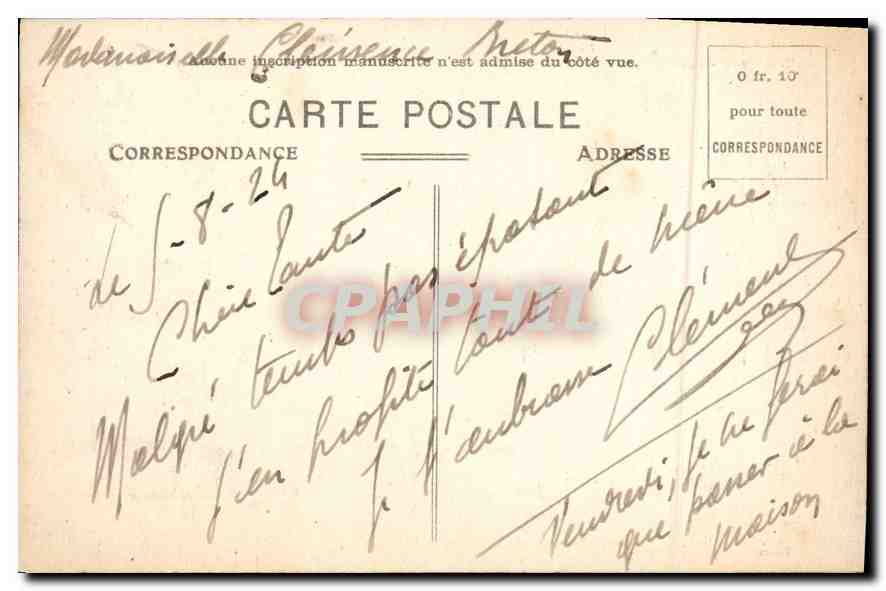 Mademoiselle Clémence Breton
Aucune inscription manuscrite n'est admise du côté vue.
CARTE POSTALE
CORRESPONDANCE
ADRESSE
0 fr. 10
pour toute
CORRESPONDANCE
le 5-8-24
Chère Tante
Malgré temps pas épatant
j'en profite tout de même
Je t'embrasse Clément
Vendredi, je ne ferai
que passer à la
maison
CPAPHIL